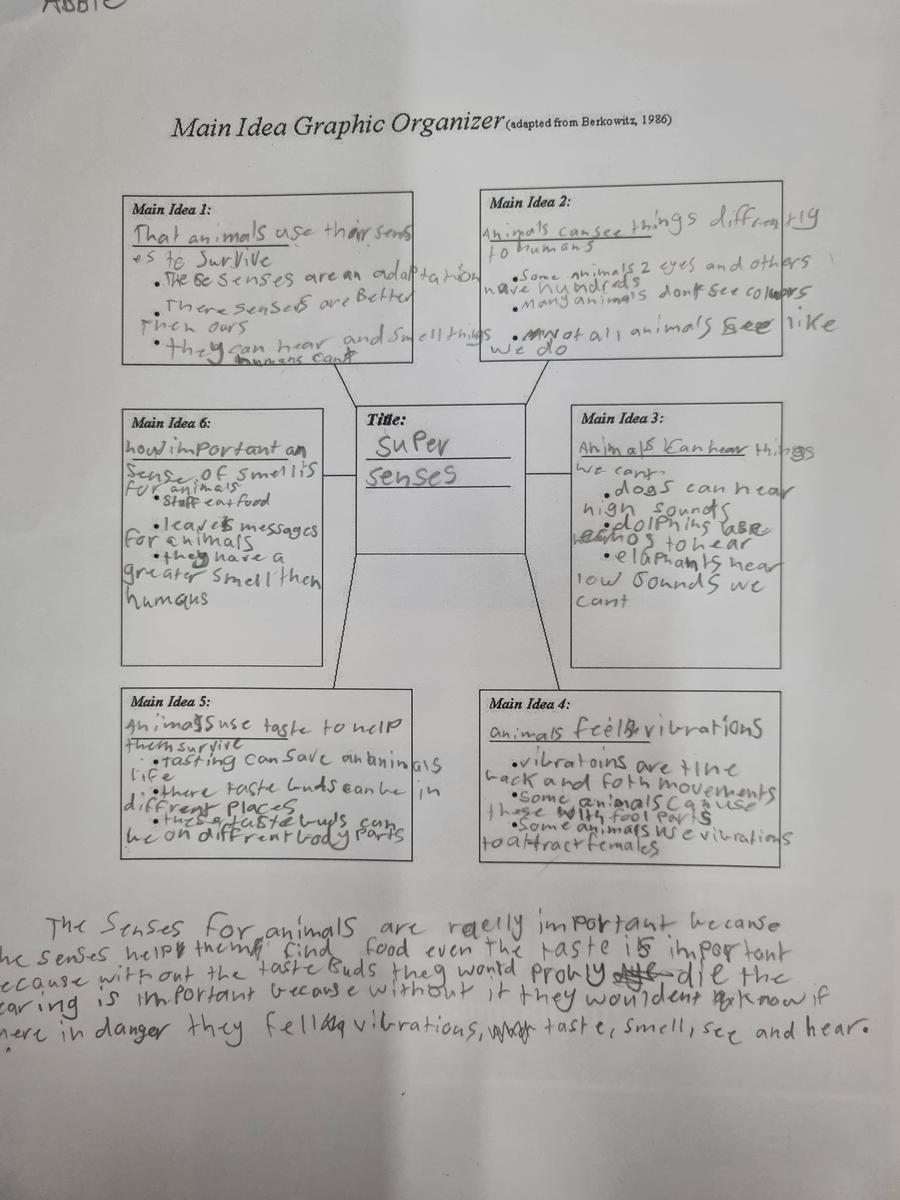 ABBIE
Main Idea Graphic Organizer (adapted from Berkowitz, 1986)
Main Idea 1:
That animals use their sens
es to survive
• These senses are an adaptation
• There senses are Better
Then ours
• they can hear and smell things
humans cant
Main Idea 2:
Animals can see things diffrently
to humans
• Some animals 2 eyes and others
have hundreds
• Many animals dont see colours
• Not all animals see like
we do
Main Idea 6:
how important an
Sense of smell is
for animals
• Staff eat food
• leaves messages
for animals
• they have a
greater smell then
humans
Title:
super
senses
Main Idea 3:
Animals can hear things
we cant
• dogs can hear
high sounds
• dolphins use
echos to hear
• elaphants hear
low sounds we
cant
Main Idea 5:
Animals use taste to help
them survive
• tasting can save an animals
life
• there taste buds can be in
diffrent places
• taste buds can
be on diffrent body parts
Main Idea 4:
animals feel vibrations
• vibratoins are tine
back and foth movements
• Some animals can use
these with fool parts
• Some animals use vibrations
to attract females
The Senses for animals are raelly important because
he senses help them find food even the taste is important
ecause without the taste Buds they would probly die the
earing is important because without it they wouldent know if
here in danger they fell vibrations, taste, smell, see and hear.